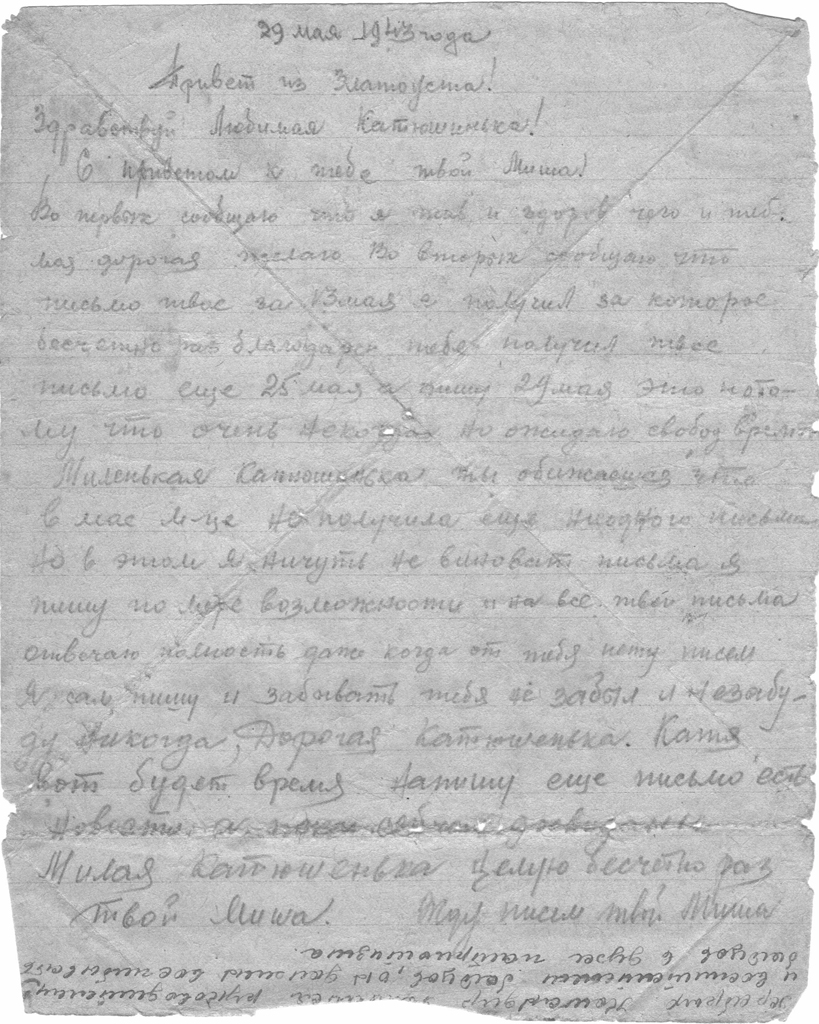 29 мая 1943 года
Привет из Златоуста!
Здравствуй Любимая Катюшинька!
С приветом к тебе твой Миша!
Во первых сообщаю что я жив и здоров чего и теб.
моя дорогая желаю Во вторых сообщаю что
письмо твое за 13 мая я получил за которое
бесчетно раз благодарю тебя получил твое
письмо еще 25 мая а пишу 29 мая это пото-
му что очень некогда но ожидаю свобод время
Миленькая Катюшинька ты обижаешся что
в мае м-це не получила еще ниодного письма
но в этом я ничуть не виноват письма я
пишу по мере возможности и на все твои письма
отвечаю полность даже когда от тебя нету писем
Я сам пишу и забывать тебя не забыл и незабу-
ду никогда, Дорогая Катюшенька. Катя
вот будет время напишу еще письмо есть
новости а пока сейчас досвидания
Милая Катюшенька целую бесчетно раз
твой Миша. Жду писем твой Миша
Командир руководящему
и воспитателем бойцов, он должен воспитывать
бойцов в духе патриотизма.